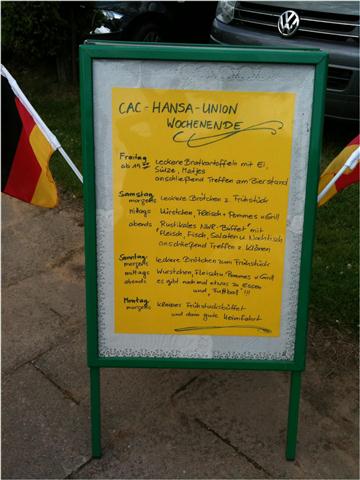 CAC-HANSA-UNION
WOCHENENDE
Freitag
ab 19 leckere Bratkartoffeln mit Ei,
Sülze, Matjes
anschließend Treffen am Bierstand
Samstag
morgens leckere Brötchen z. Frühstück
mittags Würstchen, Fleisch + Pommes v. Grill
abends Rustikales NWR-Büffet mit
Fleisch, Fisch, Salaten u. Nachtisch
anschließend Treffen z. Klönen
Sonntag
morgens leckere Brötchen zum Frühstück
mittags Würstchen, Fleisch + Pommes v. Grill
abends es gibt noch mal etwas zu Essen
und "Fußball" !!!
Montag
morgens kleines Frühstücksbüffet
und dann gute Heimfahrt